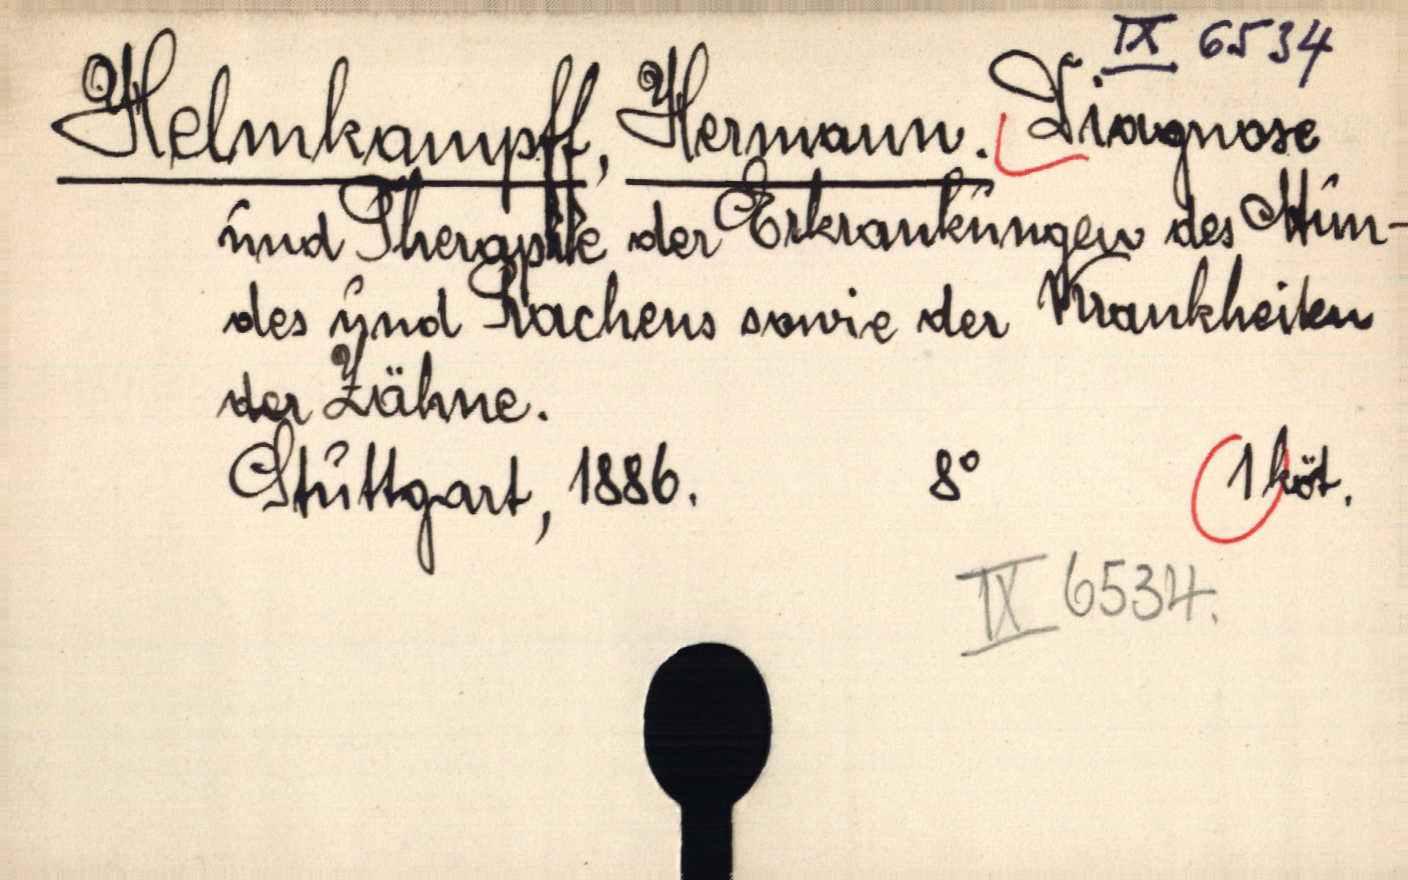 IX 6534
Helmkampff, Hermann. Diagnose
und Therapie der Erkrankungen des Mun-
des und Rachens sowie der Krankheiten
der Zähne.
Stuttgart, 1886. 8° 1 köt.
IX 6534.